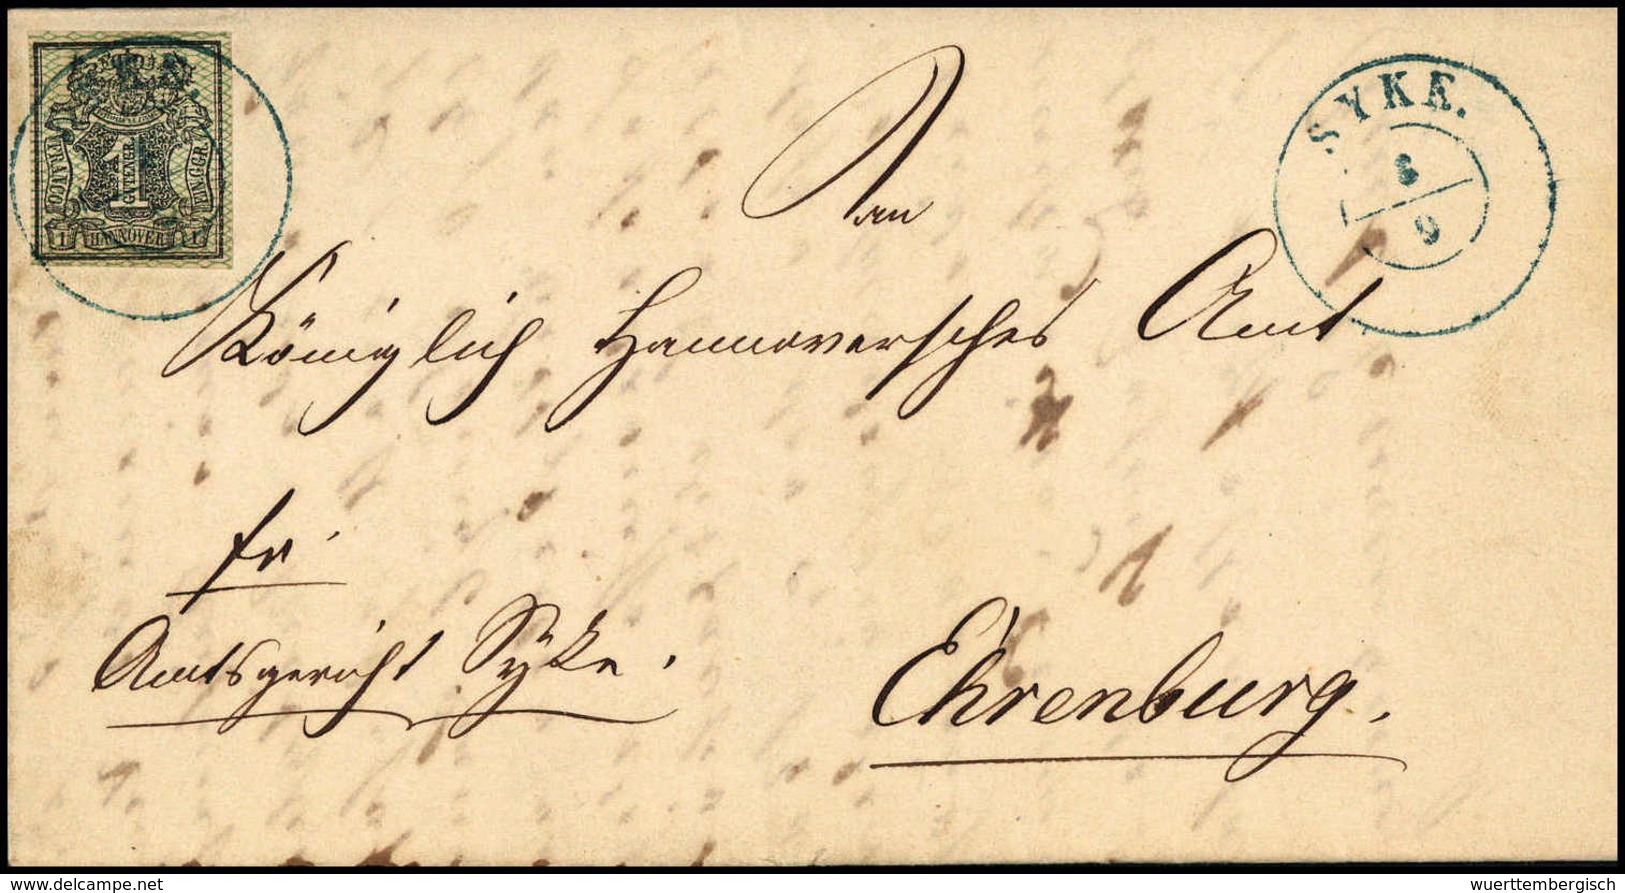 FRANCO
1
GUTENGR
EIN GGR
1 HANNOVER 1
SYKE.
9
An
Königlich Hannoversches Amt
fr.
Amtsgericht Syke.
Ehrenburg.
www.delcampe.net
wuerttembergisch